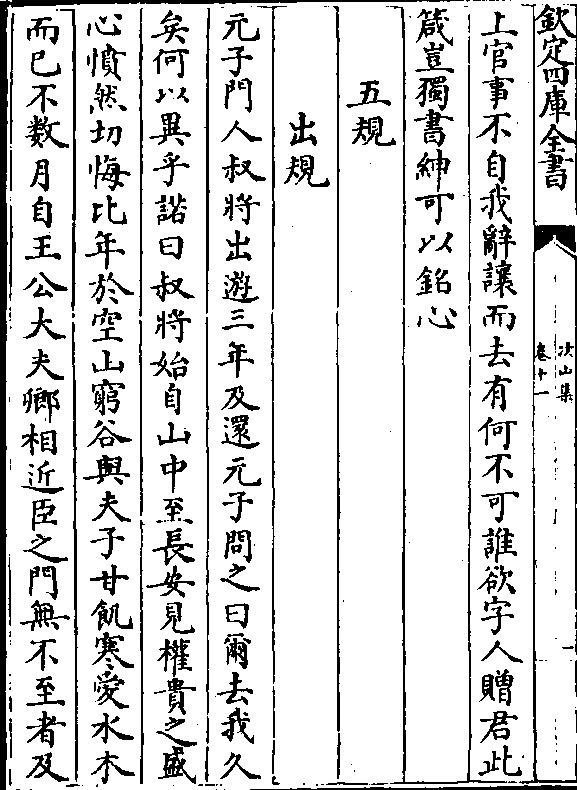 欽定四庫全書
次山集
卷十一
上官事不自我辭讓而去有何不可誰欲字人贈君此
箴豈獨書紳可以銘心
五規
出規
元子門人叔將出遊三年及還元子問之曰爾去我久
矣何以異乎諾曰叔將始自山中至長安見權貴之盛
心憤然切悔比年於空山窮谷與夫子甘飢寒愛水木
而已不数月自王公大夫卿相近臣之門無不至者及